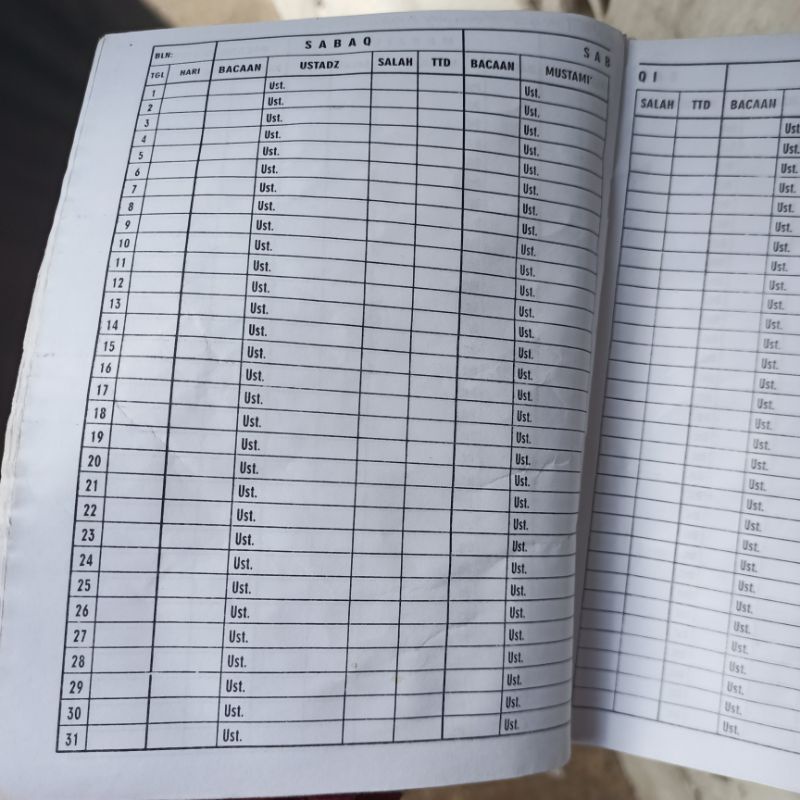 BLN: S A B A Q S A B
TGL HARI BACAAN USTADZ SALAH TTD BACAAN MUSTAMI'
1 Ust. Ust.
2 Ust. Ust.
3 Ust. Ust.
4 Ust. Ust.
5 Ust. Ust.
6 Ust. Ust.
7 Ust. Ust.
8 Ust. Ust.
9 Ust. Ust.
10 Ust. Ust.
11 Ust. Ust.
12 Ust. Ust.
13 Ust. Ust.
14 Ust. Ust.
15 Ust. Ust.
16 Ust. Ust.
17 Ust. Ust.
18 Ust. Ust.
19 Ust. Ust.
20 Ust. Ust.
21 Ust. Ust.
22 Ust. Ust.
23 Ust. Ust.
24 Ust. Ust.
25 Ust. Ust.
26 Ust. Ust.
27 Ust. Ust.
28 Ust. Ust.
29 Ust. Ust.
30 Ust. Ust.
31 Ust. Ust.
Q I
SALAH TTD BACAAN
Ust
Ust.
Ust.
Ust.
Ust.
Ust.
Ust.
Ust.
Ust.
Ust.
Ust.
Ust.
Ust.
Ust.
Ust.
Ust.
Ust.
Ust.
Ust.
Ust.
Ust.
Ust.
Ust.
Ust.
Ust.
Ust.
Ust.
Ust.
Ust.
Ust.
Ust.